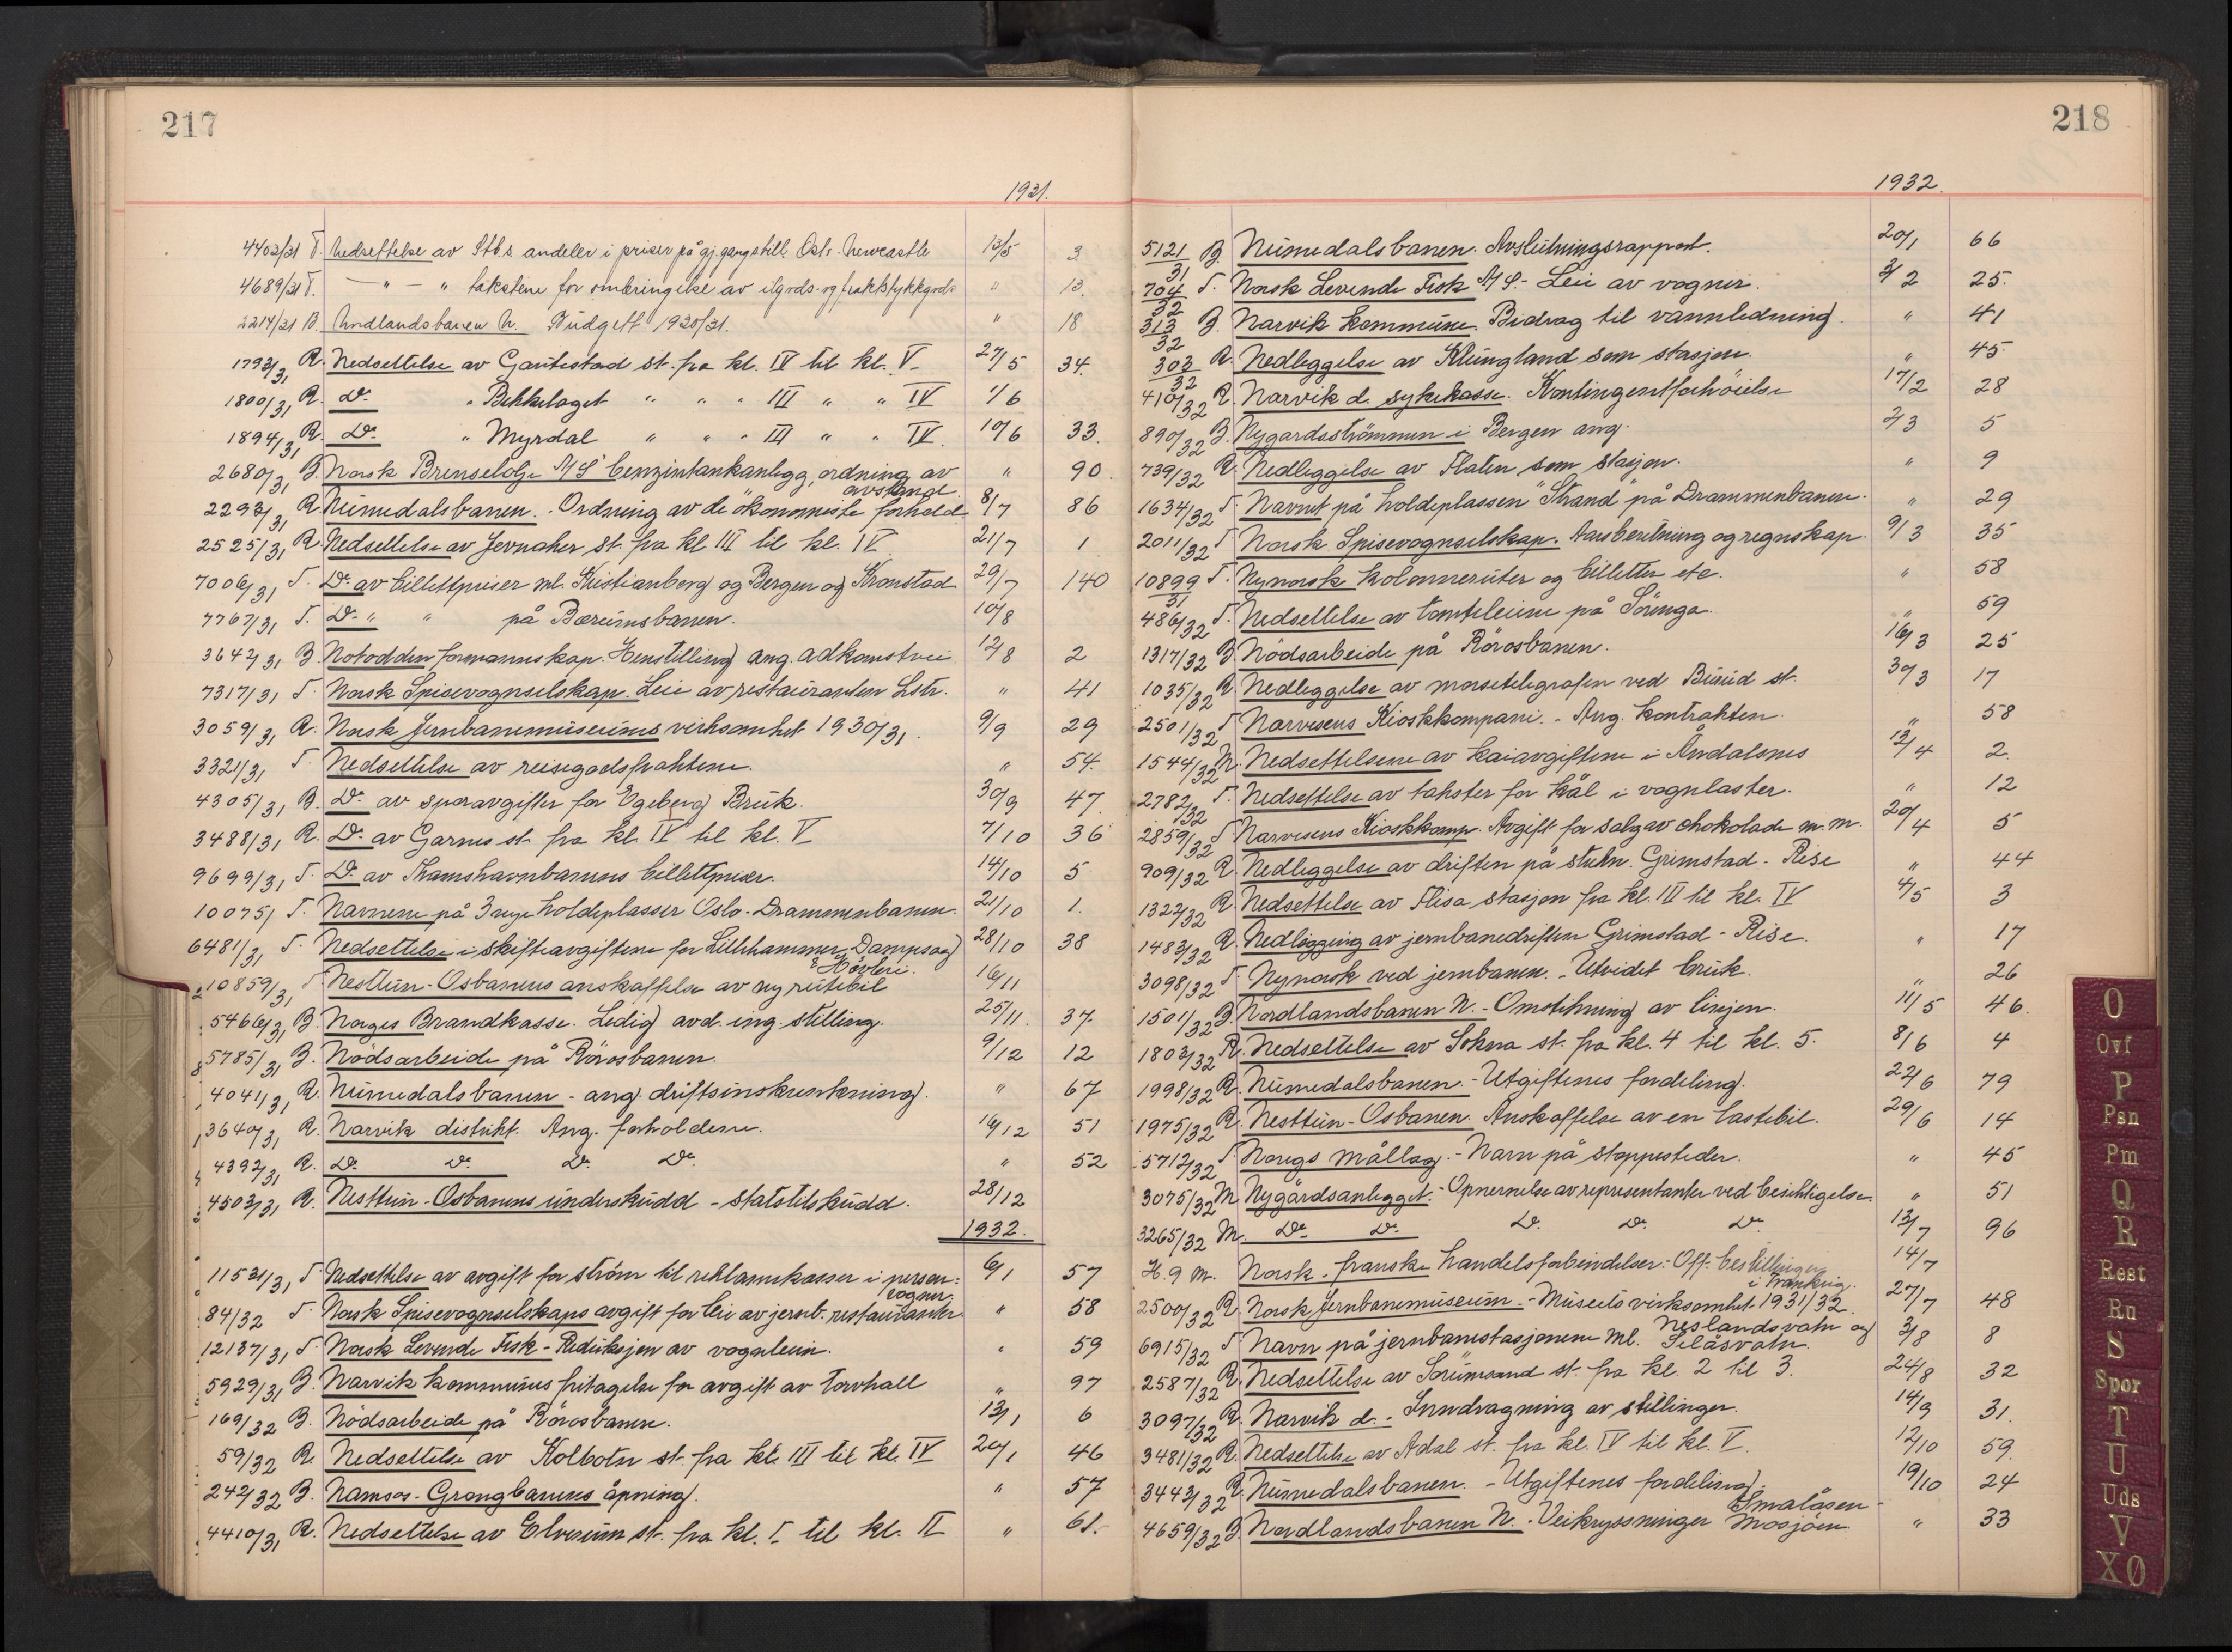 217
1931.
4403/31 T. Nedsettelse av Stb.s andeler i priser på gj.gangsbill. Oslo-Newcastle 13/5 3
4689/31 T. — " — " takstene for ombringelse av ilgods- og fraktstykkgods " 13.
2214/31 B. Nordlandsbanen N. Budgett 1930/31. " 18
1793/31 R. Nedsettelse av Gautestad st. fra kl. IV til kl. V 27/5 34.
1800/31 R. Do " Bekkelaget " " " III " " IV 1/6
1894/31 R. Do " Myrdal " " " III " " IV. 10/6 33.
2680/31 B. Norsk Brenselolje A/S benzintankanlegg, ordning av " 90.
avstand.
2293/31 R. Numedalsbanen. - Ordning av de økonomiske forhold. 8/7 86
2525/31 R. Nedsettelse av Jevnaker st. fra kl. III til kl. IV 21/7 1
7006/31 T. Do av billettpriser ml. Kristianborg og Bergen og Kronstad 29/7 140
7767/31 T. Do " " på Bærumsbanen. 10/8
3642/31 B. Notodden formannskap. Henstilling ang. adkomstvei 12/8 2
7317/31 T. Norsk Spisevognselskap. Leie av restauranten Lstr. " 41
3059/31 R. Norsk Jernbanemuseums virksomhet 1930/31. 9/9 29
3321/31 T. Nedsettelse av reisegodsfraktene. " 54.
4305/31 B. Do av sporavgifter for Egeberg Bruk. 30/9 47.
3488/31 R. Do av Garnes st. fra kl. IV til kl. V 7/10 36
9699/31 T. Do av Thamshavnbanens billettpriser. 14/10 5
10075/ T. Navnene på 3 nye holdeplasser Oslo-Drammenbanen. 21/10 1.
6481/31 T. Nedsettelse i skifteavgiftene for Lillehammer Dampsag 28/10 38
& Høvleri.
10859/31 T Nesttun-Osbanens anskaffelse av ny rutebil 16/11
5466/31 B. Norges Brandkasse. Ledig avd. ing. stilling. 25/11. 37.
5785/31 B. Nödsarbeide på Rörosbanen. 9/12 12
4041/31 R. Numedalsbanen - ang. driftsinskrenkning. " 67
3640/31 R. Narvik distrikt. Ang. forholdene. 16/12 51
4392/31 R. Do Do Do Do " 52
4503/31 R. Nesttun-Osbanens underskudd - statstilskudd. 28/12
1932.
11531/31 T Nedsettelse av avgift for ström til reklamekasser i person= 6/1 57
vogner.
84/32 T. Norsk Spisevognselskaps avgift for leie av jernb. restauranter " 58
12137/31 T. Norsk Levende Fisk - Reduksjon av vognleien. " 59
5929/31 B. Narvik kommunes fritagelse for avgift av torvhall " 97
169/32 B. Nödsarbeide på Rörosbanen. 13/1 6
59/32 R. Nedsettelse av Kolbotn st. fra kl. III til kl. IV 20/1 46
242/32 B. Namsos-Grongbanens åpning. " 57
4410/31 R. Nedsettelse av Elverum st. fra kl. I til kl. II " 61.
218
1932.
5121/31 B. Numedalsbanen. Avslutningsrapport. 20/1 66
704/32 T. Norsk Levende Fisk A/S. - Leie av vogner. 3/2 25.
313/32 B. Narvik kommune. Bidrag til vannledning. " 41
303/32 R. Nedleggelse av Klungland som stasjon. " 45
410/32 R. Narvik d. sykekasse. Kontingentforhöielse 17/2 28
890/32 B. Nygårdsströmmen i Bergen ang. 2/3 5
739/32 R. Nedleggelse av Flaten som stasjon. " 9
1634/32 T. Navnet på holdeplassen "Strand" på Drammenbanen. " 29
2011/32 T Norsk Spisevognselskap. Aarsberetning og regnskap. 9/3 35
10899/31 T. Nynorsk kolonneruter og billetter etc. " 58
486/32 T. Nedsettelse av tomteleiene på Sörenga. " 59
1317/32 B Nödsarbeide på Rörosbanen. 16/3 25
1035/32 R Nedleggelse av morsetelegrafen ved Buud st. 30/3 17
2501/32 T Narvesens Kioskkompani. - Ang. kontrakten. " 58
1544/32 M. Nedsettelsene av kaiavgiftene i Åndalsnes 13/4 2.
2782/32 T. Nedsettelse av takster for kål i vognlaster. " 12
2859/32 T Narvesens Kioskkomp. Avgift for salg av chokolade m.m. 20/4 5
909/32 R. Nedleggelse av driften på strekn. Grimstad - Rise " 44
1322/32 R. Nedsettelse av Flisa stasjon fra kl. III til kl. IV 4/5 3
1483/32 R. Nedlegging av jernbanedriften Grimstad - Rise. " 17
3098/32 T. Nynorsk ved jernbanen. - Utvidet bruk. " 26
1501/32 B. Nordlandsbanen N. - Omstikning av linjen. 11/5 46.
1803/32 R. Nedsettelse av Sokna st. fra kl. 4 til kl. 5. 8/6 4
1998/32 R. Numedalsbanen. - Utgiftenes fordeling. 22/6 79
1975/32 R. Nesttun-Osbanen. Anskaffelse av en lastebil. 29/6 14
5712/32 T. Noregs mållag. - Navn på stoppesteder. " 45
3075/32 M Nygårdsanlegget. - Opnevnelse av representanter ved besiktigelse. " 51
3265/32 M. Do Do Do Do Do 13/7 96
H. 9 M. Norsk-franske handelsforbindelser. - Off. bestillinger 14/7
i Frankrig.
2500/32 R. Norsk Jernbanemuseum. - Museets virksomhet 1931/32. 27/7 48
Neslandsvatn og
6915/32 T Navn på jernbanestasjonene ml. Selåsvatn. 3/8 8
2587/32 R. Nedsettelse av Sörumsand st. fra kl. 2 til 3. 24/8 32
3097/32 R. Narvik d. - Inndragning av stillinger. 14/9 31.
3481/32 R. Nedsettelse av Ådal st. fra kl. IV til kl. V. 12/10 59.
3443/32 R. Numedalsbanen. - Utgiftenes fordeling. 19/10 24
Smalåsen-
4659/32 B. Nordlandsbanen N. - Veikryssninger Mosjöen. " 33
O
Ovf
P
Psn
Pm
Q
R
Rest
Ru
S
Spor
T
U
Uds
V
XØ